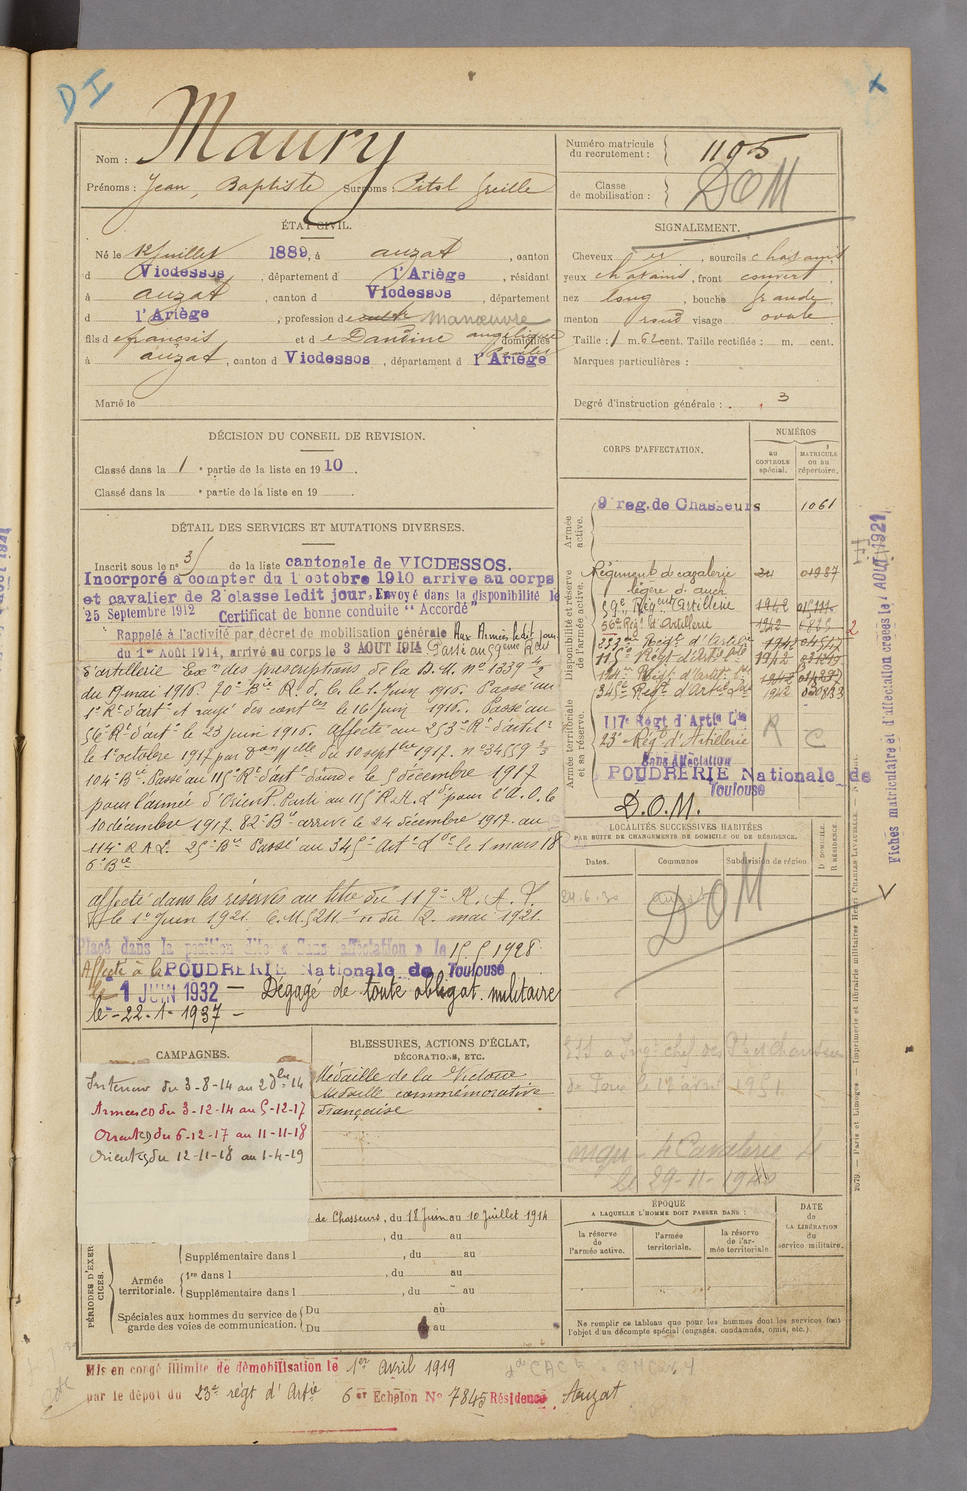 DI
Nom : Maury
Numéro matricule du recrutement : 1195
Prénoms : Jean, Baptiste Surnoms : Pitol
Classe de mobilisation : DOM
ÉTAT CIVIL.
Né le 12 Juillet 1889, à auzat, canton
d Vicdessos, département d l'Ariège, résidant
à auzat, canton d Vicdessos, département
d l'Ariège, profession de manœuvre
fils de françois et de Dandine angélique domiciliés
à auzat, canton d Vicdessos, département d l'Ariège
Marié le
SIGNALEMENT.
Cheveux , sourcils chatains
yeux chatains, front couvert,
nez long, bouche grande,
menton rond visage ovale
Taille : 1 m. 62 cent. Taille rectifiée : m. cent.
Marques particulières :
Degré d'instruction générale : 3
DÉCISION DU CONSEIL DE REVISION.
Classé dans la 1e partie de la liste en 1910.
Classé dans la e partie de la liste en 19 .
DÉTAIL DES SERVICES ET MUTATIONS DIVERSES.
Inscrit sous le n° 31 de la liste cantonale de VICDESSOS.
Incorporé à compter du 1 octobre 1910 arrivé au corps
et cavalier de 2e classe ledit jour. Envoyé dans la disponibilité le
25 Septembre 1912 Certificat de bonne conduite "Accordé"
Rappelé à l'activité par décret de mobilisation générale Aux Armées ledit jour
du 1er Août 1914, arrivé au corps le 3 AOUT 1914 Passé au 59ème Rgt
d'artillerie Exon des prescriptions de la D. M. n° 1339
du 17 mai 1916. 70e Bie R. d. b. le 1 Juin 1916. Passé au
1e Rt d'artie et rayé des contles le 16 Juin 1916. Passé au
56e Rt d'artie le 23 juin 1916. Affecté au 253e Rt d'artie
le 1 octobre 1917 par Don Mlle du 10 septbre 1917. n° 34559
104e Bie. Passé au 115e Rt d'artie lourde le 5 décembre 1917
pour l'armée d'Orient. Parti au 115e R.A.L. pour l'A.O. le
10 décembre 1917. 82e Bie arrivé le 24 décembre 1917 au
114e R A L. 25e Bie Passé au 345e Artie Lde le 1 mars 18
6e Bie
affecté dans les réserves au titre du 117e R. A. L.
le 1er Juin 1921. C. M. 5211 du 2 mai 1921.
Placé dans la position dite « Sans affectation » le 15.5.1928.
Affecté à la POUDRERIE Nationale de Toulouse
le 1 JUIN 1932 – Dégagé de toute obligat. militaire
le – 22.1.1937 –
CORPS D'AFFECTATION.
NUMÉROS
au CONTROLE spécial.
MATRICULE OU AU répertoire.
Armée active.
9e reg. de Chasseurs 1061
Disponibilité et réserve de l'armée active.
Régiment de cavalerie légère d'auch
59e Régiment Artillerie 1942
56e Régt d'Artillerie 1942
253e Régt d'Artillerie 1942
115e Régt d'Artie Lde 1942
114e Régt d'Artie Lde 1942
345e Régt d'Artie Lde 1942
Armée territoriale et sa réserve.
117e Régt d'Artie Lde R C
23e Régt d'Artillerie
Sans Affectation
POUDRERIE Nationale de Toulouse
D.O.M.
LOCALITÉS SUCCESSIVES HABITÉES
PAR SUITE DE CHANGEMENTS DE DOMICILE OU DE RÉSIDENCE.
Dates. Communes Subdivision de région. D DOMICILE. R RÉSIDENCE.
24.6.30 auzat
DOM
le 29-11-1940
Fiches matriculaire et d'affectation créées le 1 AOUT 1921
CAMPAGNES.
Intérieur du 3-8-14 au 2 Dbre 14
Armées CD du 3-12-14 au 5-12-17
Orient CD du 6-12-17 au 11-11-18
Orient CS du 12-11-18 au 1-4-19
BLESSURES, ACTIONS D'ÉCLAT, DÉCORATIONS, ETC.
Médaille de la Victoire
Médaille commémorative
française
PÉRIODES D'EXERCICES.
de Chasseurs, du 18 Juin au 10 Juillet 1914
, du au
Supplémentaire dans l , du au
Armée territoriale. 1re dans l , du au
Supplémentaire dans l , du au
Spéciales aux hommes du service de garde des voies de communication. Du au
Du au
ÉPOQUE A LAQUELLE L'HOMME DOIT PASSER DANS :
la réserve de l'armée active.
l'armée territoriale.
la réserve de l'armée territoriale
DATE de LA LIBÉRATION du service militaire.
Ne remplir ce tableau que pour les hommes dont les services font l'objet d'un décompte spécial (engagés, condamnés, omis, etc.).
2079. — Paris et Limoges. — Imprimerie et librairie militaires Henri CHARLES-LAVAUZELLE.
Mis en congé illimité de démobilisation le 1er Avril 1919
par le dépôt du 23e régt d'Artie 6e Echelon N° 7845 Résidence Auzat